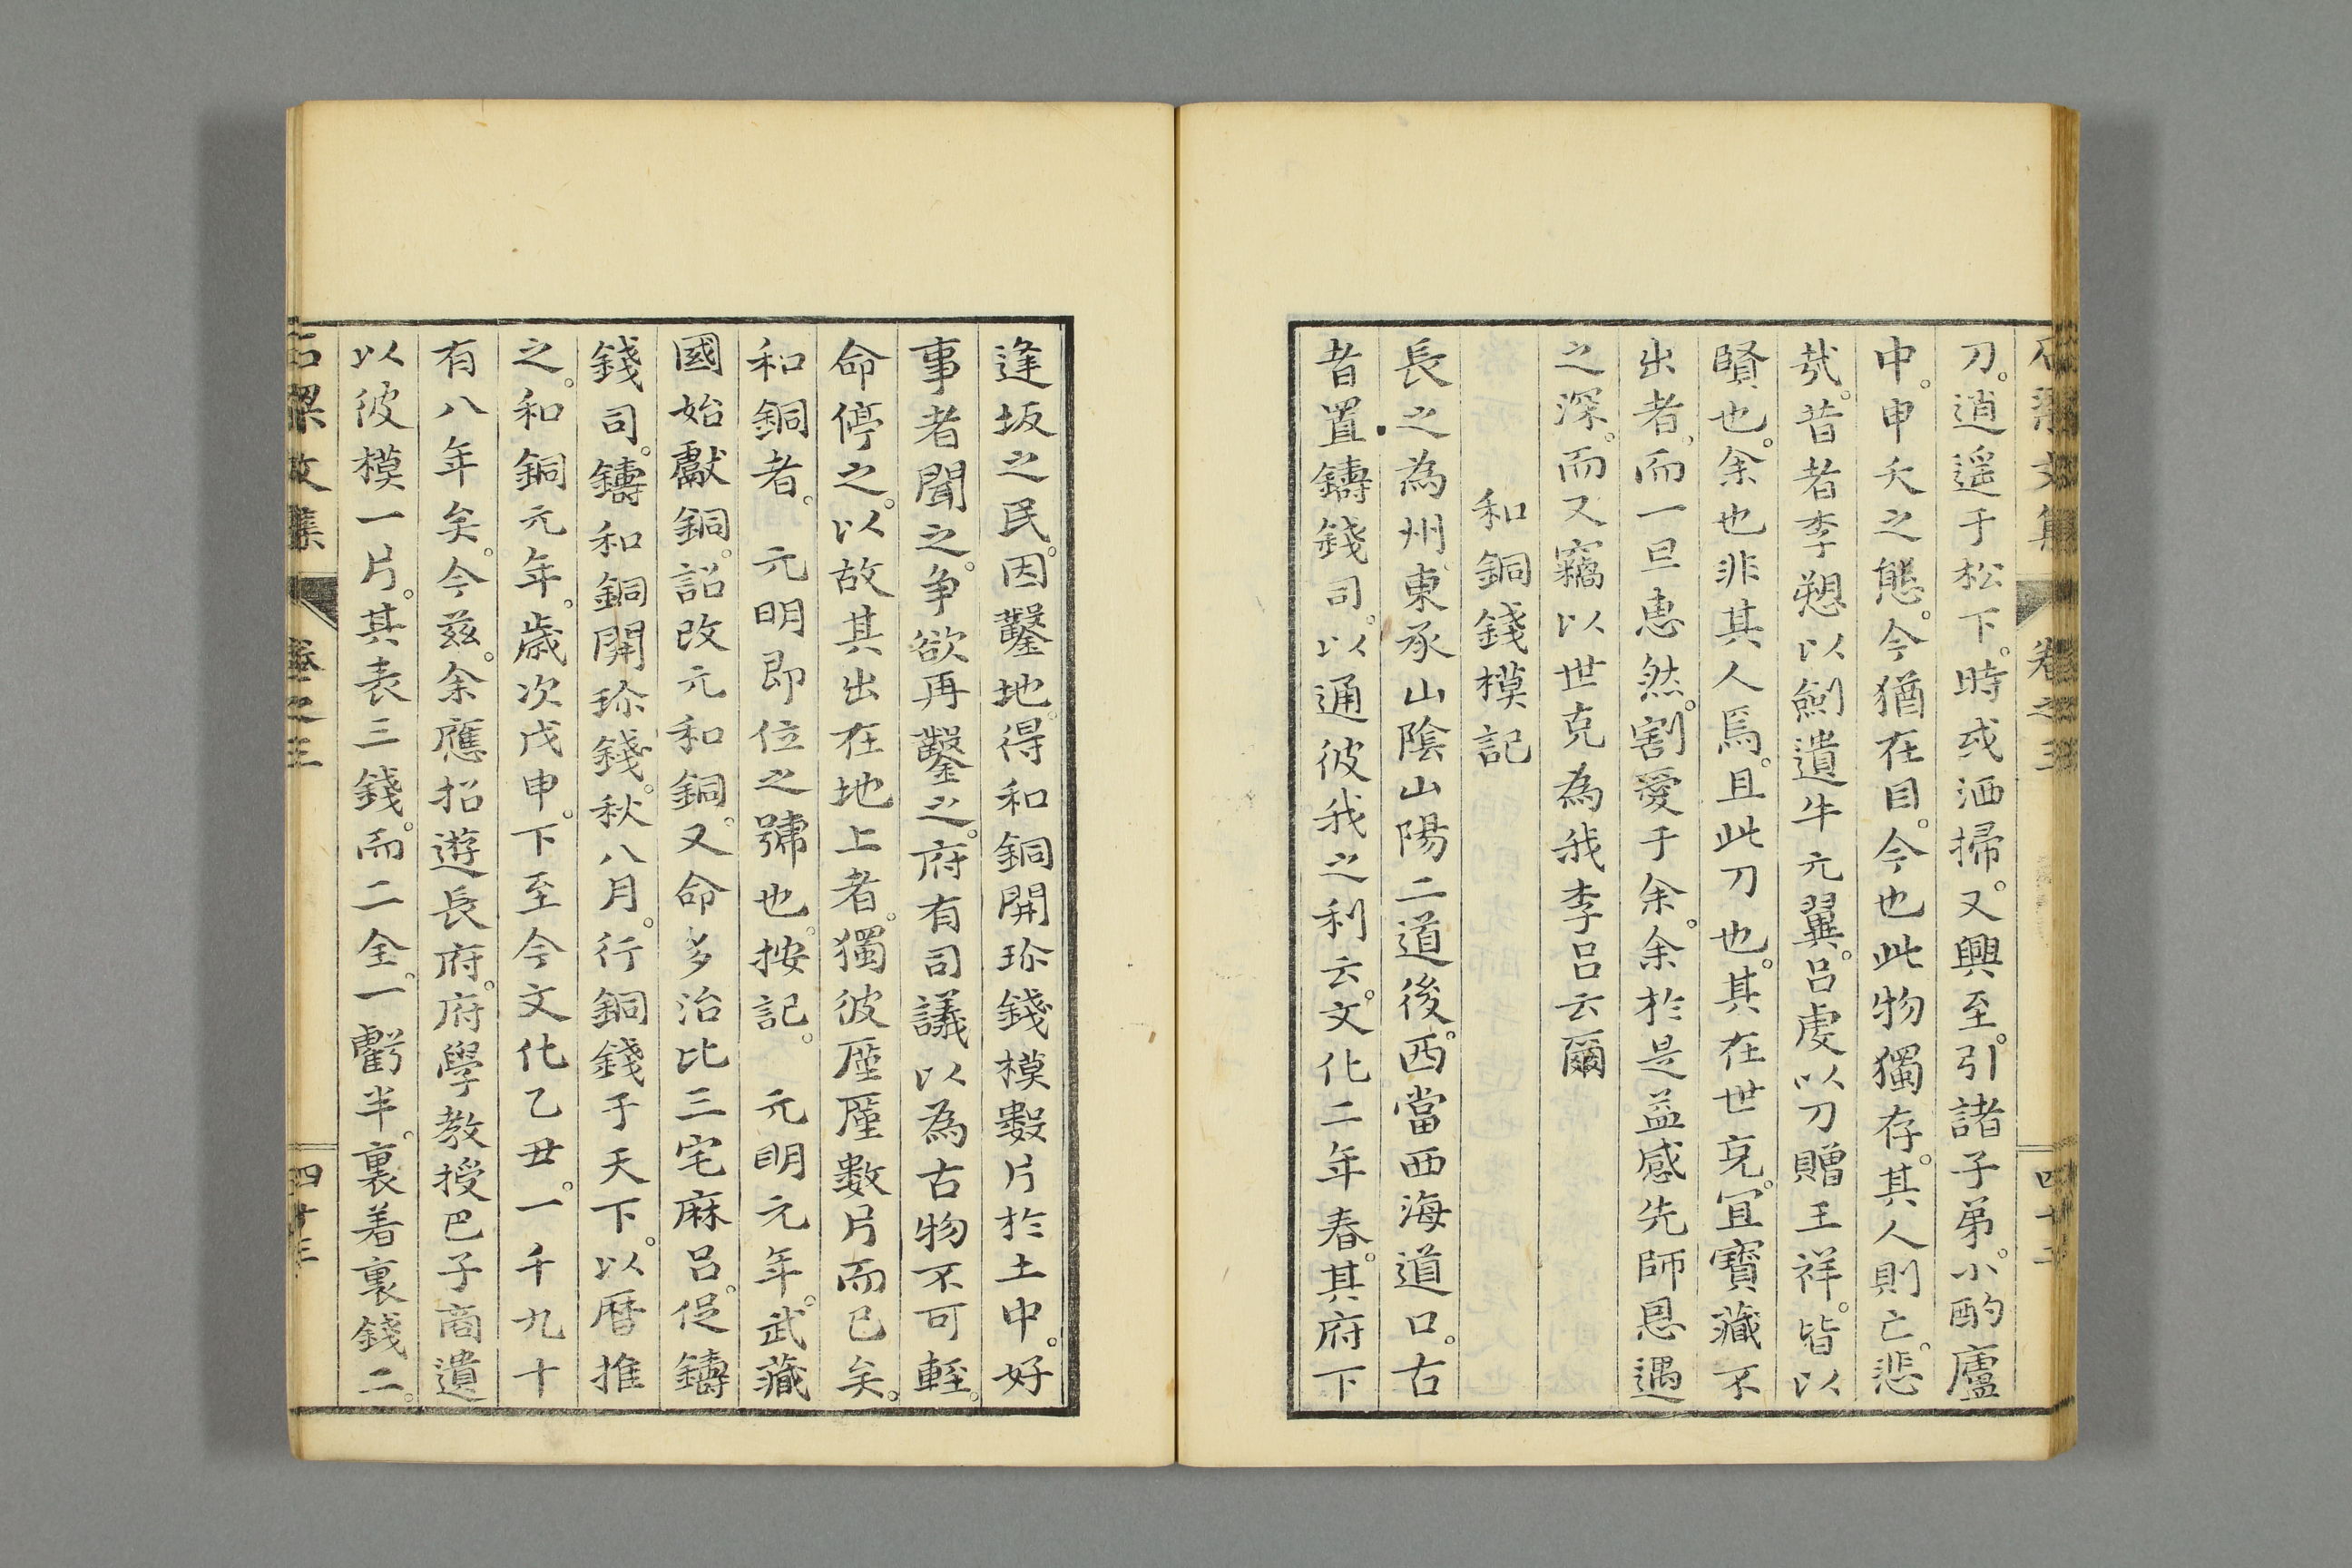 刀。逍遥于松下。時或洒掃。又興至。引諸子弟。小酌廬
中。申夭之態。今猶在目。今也此物獨存。其人則亡。悲
哉。昔者李愬以劍遺牛元翼。呂虔以刀贈王祥。皆以
賢也。余也非其人焉。且此刀也。其在世克。冝寶藏不
出者。而一旦恵然。割愛于余。余於是益感先師恩遇
之深。而又竊以世克為我李呂云爾
和銅錢模記
長之為州東承山陰山陽二道後。西當西海道口。古
昔置鑄錢司。以通彼我之利云。文化二年春。其府下
逢坂之民。因鑿地。得和銅開珎錢模數片於土中。好
事者聞之。争欲再鑿之。府有司議以為古物不可輕。
命停之。以故其出在地上者。獨彼厪厪數片而已矣。
和銅者。元明即位之號也。按記。元明元年。武藏
國始獻銅。詔改元和銅。又命多治比三宅麻呂。促鑄
錢司。鑄和銅開珎錢。秋八月。行銅錢于天下。以暦推
之。和銅元年。歳次戊申。下至今文化乙丑。一千九十
有八年矣。今茲。余應招遊長府。府學教授巴子商遺
以彼模一片。其表三錢。而二全。一虧半。裏着裏錢二。
石梁文集
卷之三
四十三